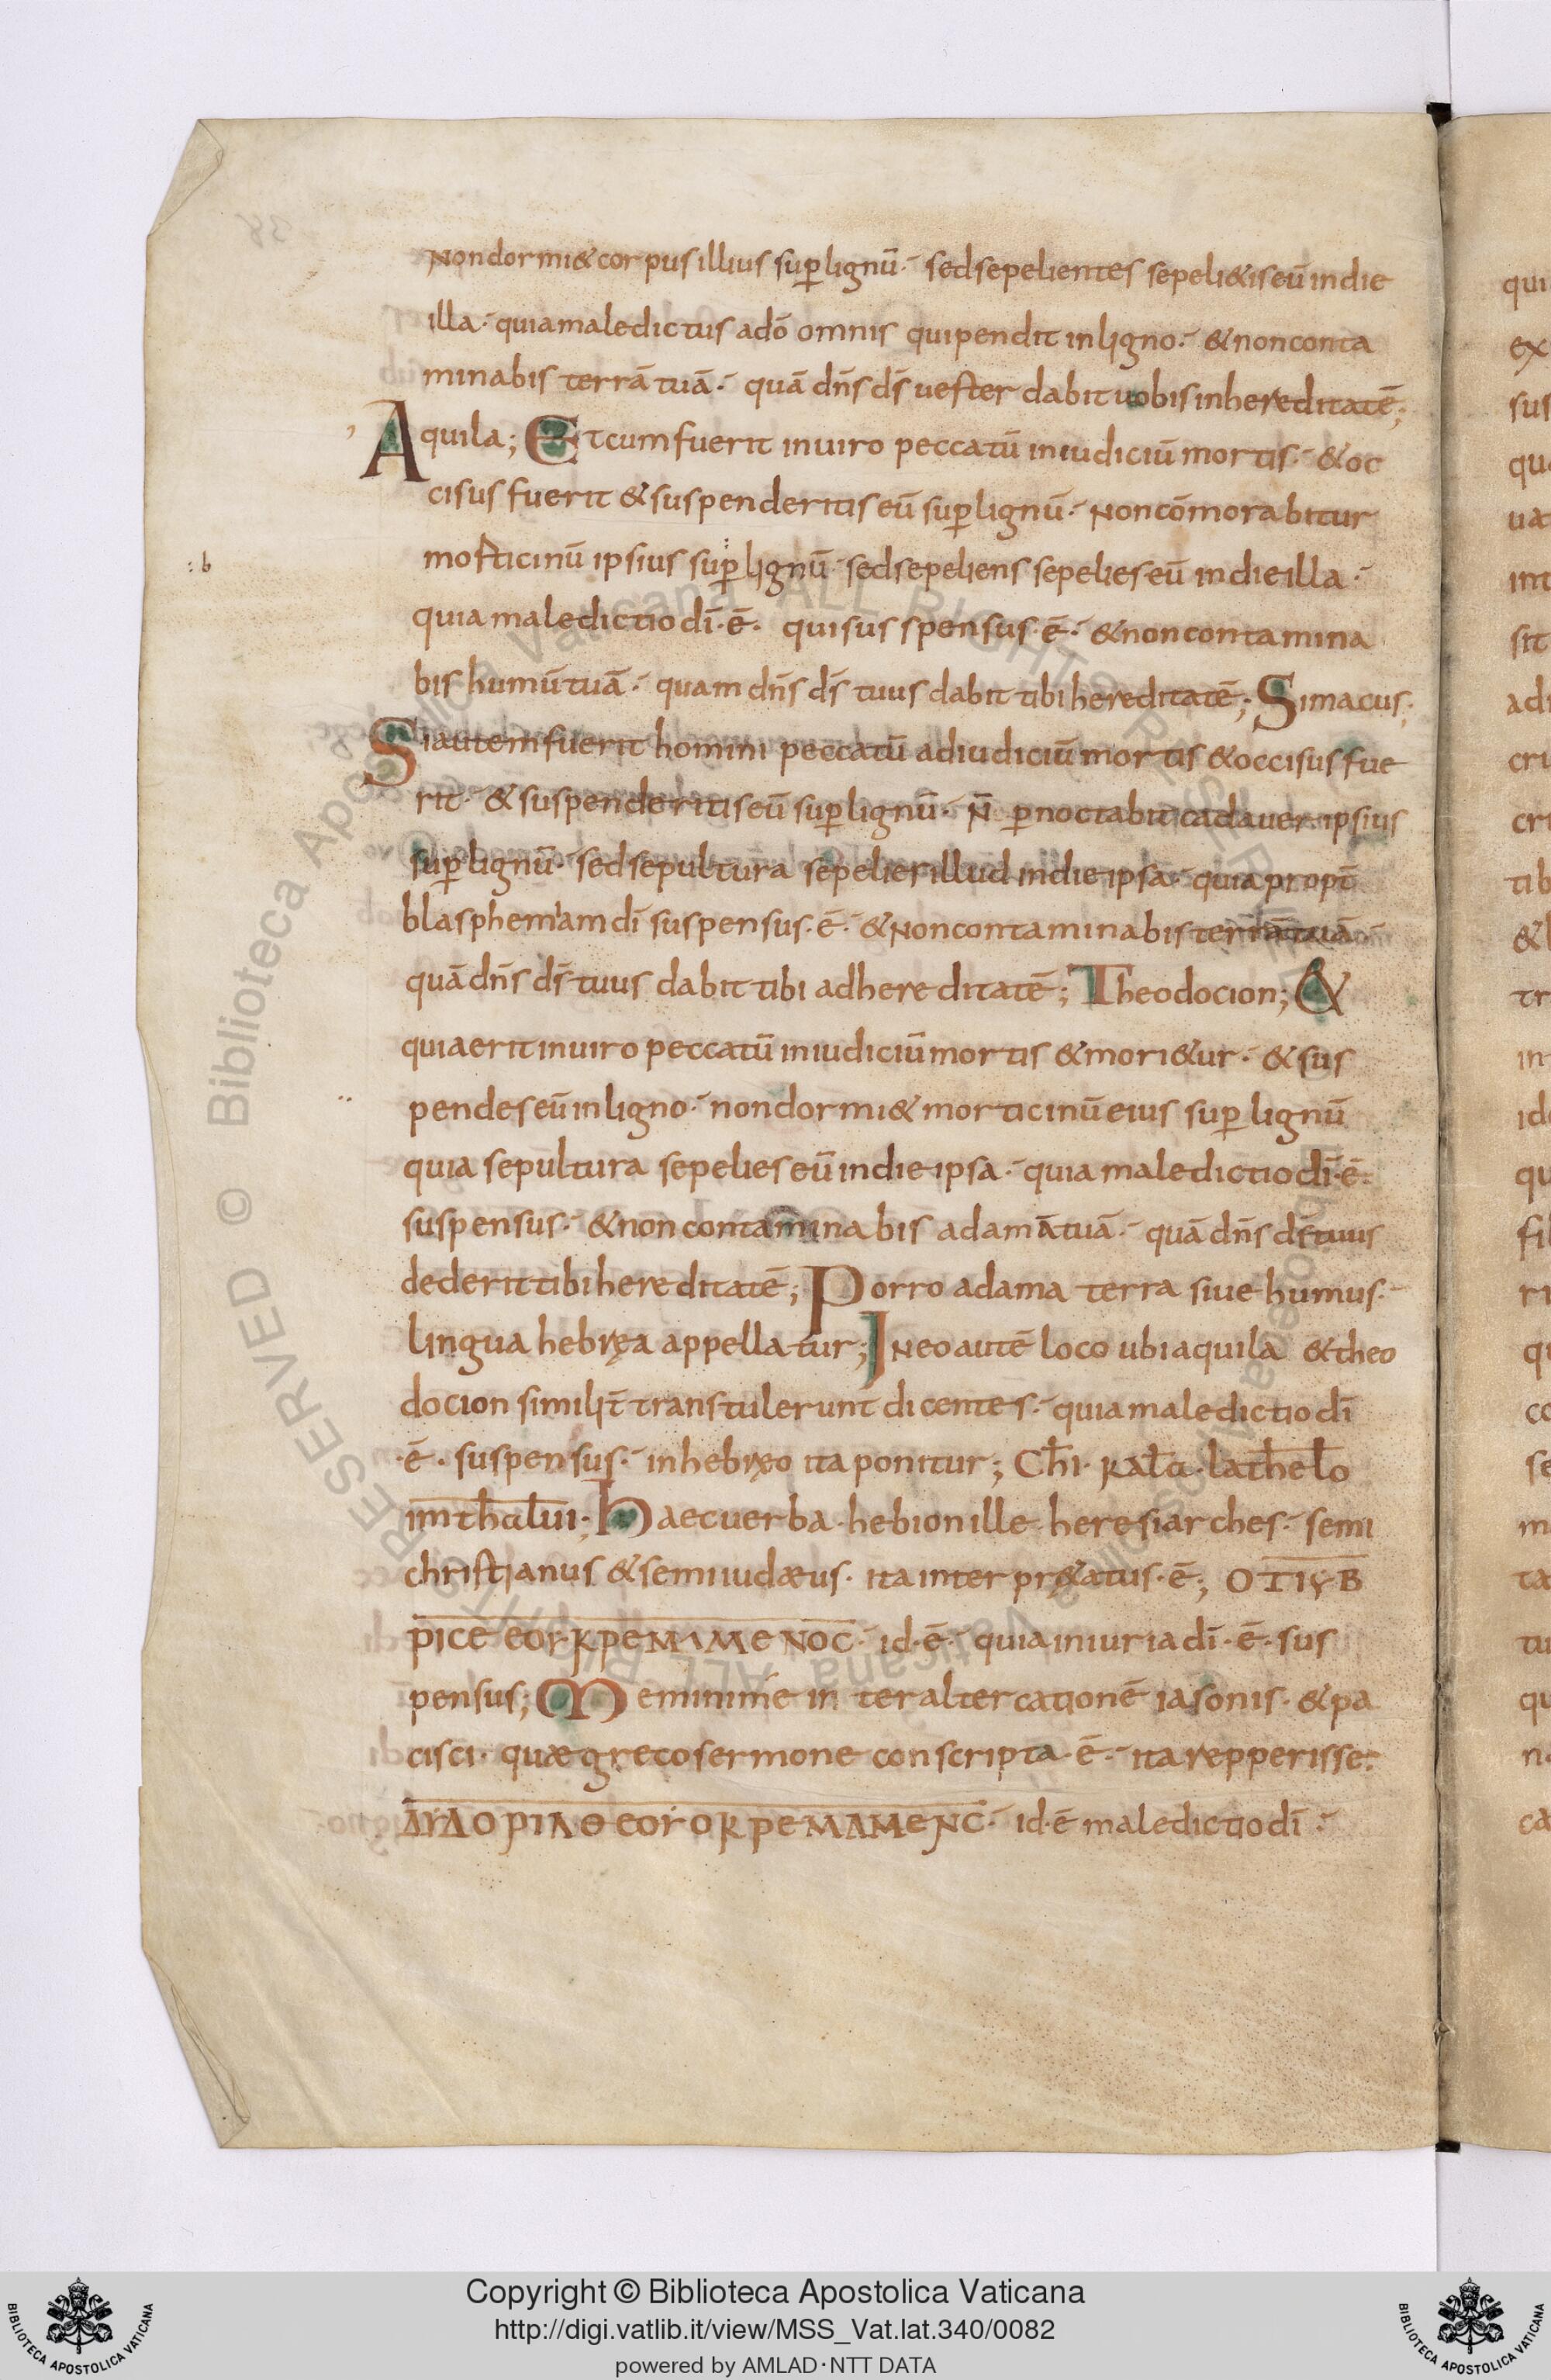 Non dormi& corpus illius sup lignū· sed sepelientes sepeli&is eū in die
illa· quia maledictus adō omnis qui pendit in ligno· & non conta
minabis terrā tuā· quā dn̄s d̄s uester dabit uobis in hereditatē;
Aquila; Et cum fuerit in uiro peccatū in iudiciū mortis· & oc
cisus fuerit & suspenderitis eū sup lignū· Non cōmorabitur
mosticinū ipsius sup lignū· sed sepeliens sepelies eū in die illa·
:b
quia maledictio dī·ē· qui sus spensus·ē· & non contamina
bis humū tuā· quam dn̄s d̄s tuus dabit tibi hereditatē; Simacus;
Si autem fuerit homini peccatū ad iudiciū mortis & occisus fue
rit· & suspenderitis eū sup lignū· N̄ pnoctabit cadauer ipsius
sup lignū· sed sepultura sepelier illud in die ipsa· quia propt̄
blasphemiam dī suspensus·ē· & Non contaminabis terrā tuā·
quā dn̄s d̄s tuus dabit tibi ad hereditatē; Theodocion; &
quia erit in uiro peccatū in iudiciū mortis & mori&ur· & sus
pendes eū in ligno· non dormi& morticinū eius sup lignū
quia sepultura sepelies eū in die ipsa· quia maledictio dī·ē·
suspensus· & non contaminabis adamā tuā· quā dn̄s d̄s tuus
dederit tibi hereditatē; Porro adama terra siue humus·
lingua hebręa appellatur; IN eo autē loco ubi aquila & theo
docion similit̄ transtulerunt dicentes· quia maledictio dī
·ē· suspensus· in hebręo ita ponitur; Chi· kala· lathelo
imthalui; Haec uerba· hebion ille heresiarches· semi
christianus & semiiudæus· ita interpr&atus·ē; OTIYB
PICE EOY KPEMIMENOC· id·ē· quia iniuria dī·ē· sus
pensus; Memini me in ter altercationē iasonis· & pa
cisci· quæ greco sermone conscripta·ē· ita repperisse:
ΔYΔOPIΛΘEOYOKPEMAMENC· id·ē maledictio dī·
Copyright © Biblioteca Apostolica Vaticana
http://digi.vatlib.it/view/MSS_Vat.lat.340/0082
powered by AMLAD·NTT DATA
BIBLIOTECA APOSTOLICA VATICANA
BIBLIOTECA APOSTOLICA VATICANA